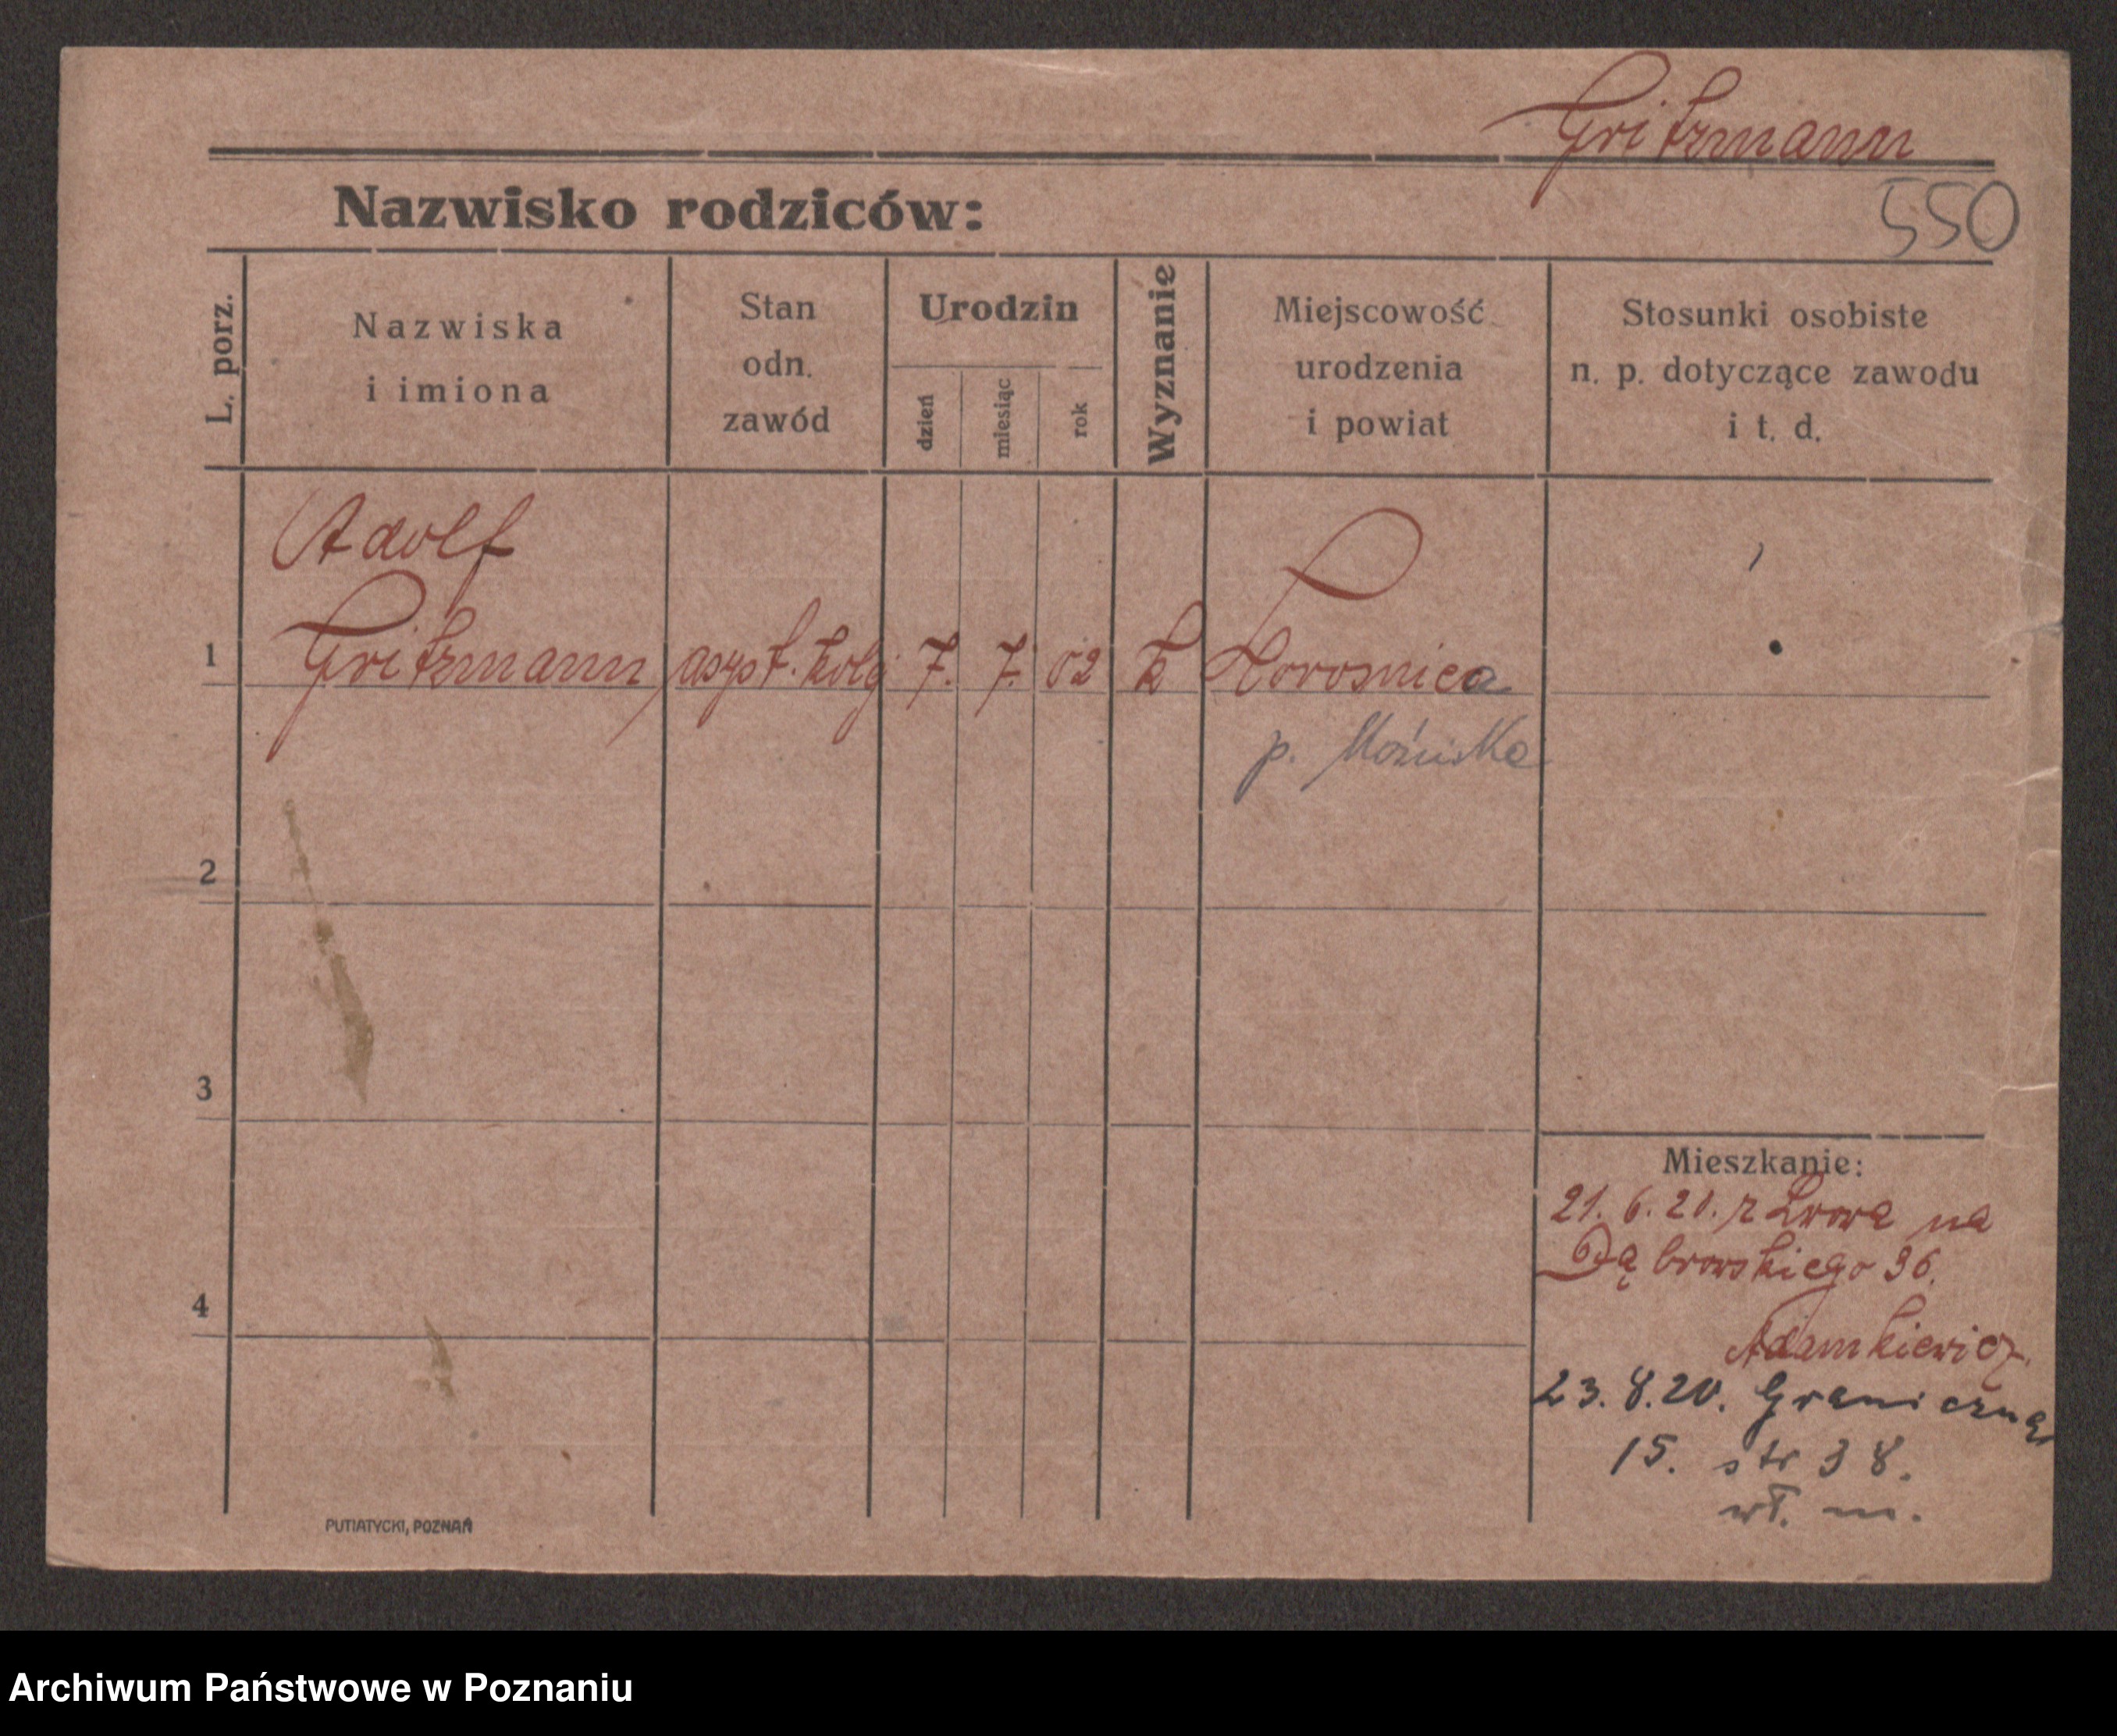 Gritzmann
550
Nazwisko rodziców:
L. porz.
Nazwiska
i imiona
Stan
odn.
zawód
Urodzin
dzień
miesiąc
rok
Wyznanie
Miejscowość
urodzenia
i powiat
Stosunki osobiste
n. p. dotyczące zawodu
i t. d.
Adolf
1 Gritzmann asyst. kolej 7. 7. 02 k
p. Mościska
2
3
4
Mieszkanie:
21. 6. 20. z Lwowa na
Dąbrowskiego 36.
Adamkiewicz.
23. 8. 20. Graniczna
15. str 38.
wł. m.
PUTIATYCKI, POZNAŃ
Archiwum Państwowe w Poznaniu